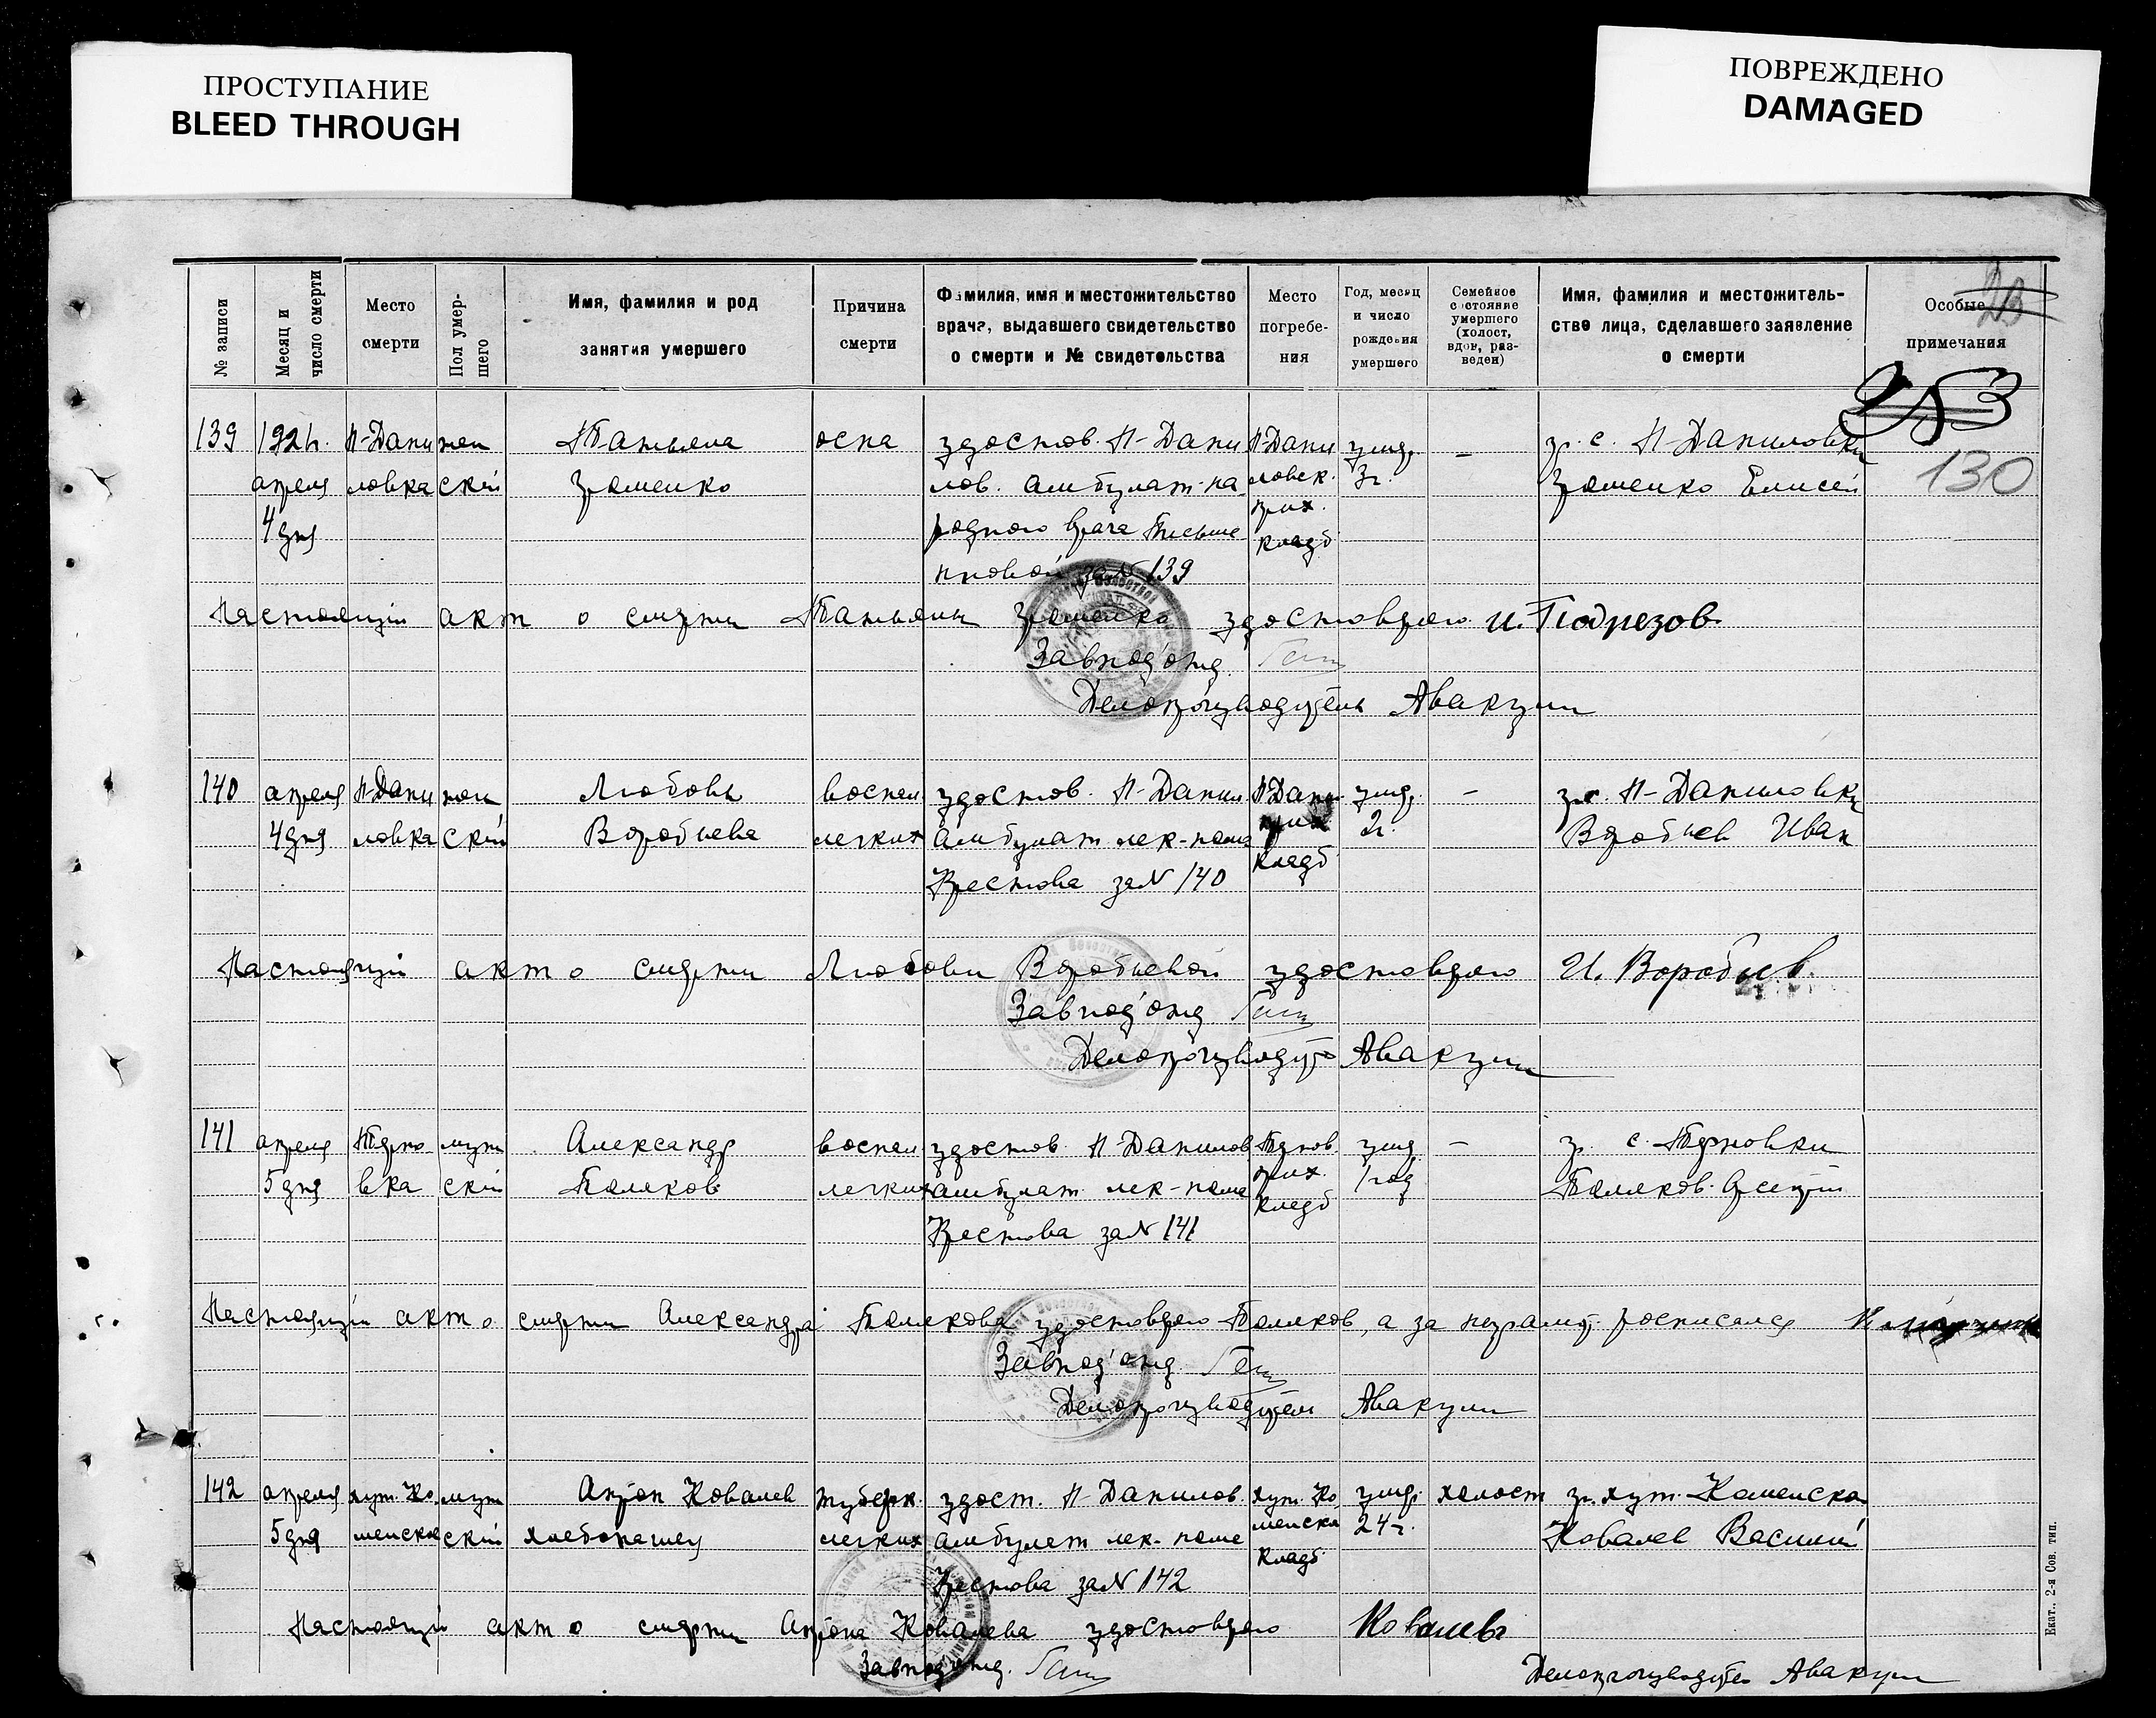 ПРОСТУПАНИЕ
BLEED THROUGH
ПОВРЕЖДЕНО
DAMAGED
№ записи
Месяц и число смерти
Место смерти
Пол умер-
шего
Имя, фамилия и род
занятия умершего
Причина
смерти
Фамилия, имя и местожительство
врача, выдавшего свидетельство
о смерти и № свидетельства
Место
погребе-
ния
Год, месяц
и число
рождения
умершего
Семейное
состояние
умершего
(холост,
вдов, раз-
веден)
Имя, фамилия и местожитель-
ство лица, сделавшего заявление
о смерти
Особые
примечания
253
130
139 апреля 4 дня
П-Дани
ловка
жен
ский
Татьяна
оспа
удостов. П-Дани
лов. амбулат. на
родного врача
за № 139
П-Дани
ловск.
прих.
кладб
умер.
3 г.
–
гр. с. П-Даниловки
Елисей
Настоящий акт о смерти Татьяны удостоверяю И. Подрезов
Завпод'отд.
Делопроизводитель Авакум
140 апреля 4 дня
П-Дани
ловка
жен
ский
Любовь
Воробьева
воспал.
легких
удостов. П-Данил.
амбулат. лек-пом
Крестова за № 140
П-Дани
прих
кладб
умер.
2 г.
–
гр. с. П-Даниловки
Воробьев Иван
Настоящий акт о смерти Любови Воробьевой удостоверяю И. Воробьев.
Завпод'отд
Авакум
141 апреля 5 дня
Терно
вка
муж
ский
Александр
Поляков
воспал.
легких
удостов. П-Данилов
амбулат. лек-пом
Крестова за № 141
прих.
кладб
умер
1 год
–
гр. с. Терновки
Поляков
Настоящий акт о смерти Александра Полякова удостоверяю Поляков, а за неграмот. росписался
Завпод'отд.
Делопроизводитель Авакум
142 апреля 5 дня
хут. Ка
менское
муж
ский
Антон Ковалев
хлебопашец
туберк.
легких
удост. П-Данилов.
амбулат лек-пом
Крестова за № 142
хут. Ка
менска
кладб
умер.
24 г.
холост
гр. хут. Каменска
Ковалев Василий
Настоящий акт о смерти Антона Ковалева удостоверяю Ковалевъ
Завпод'отд.
Авакум
Екат., 2-я Сов. тип.